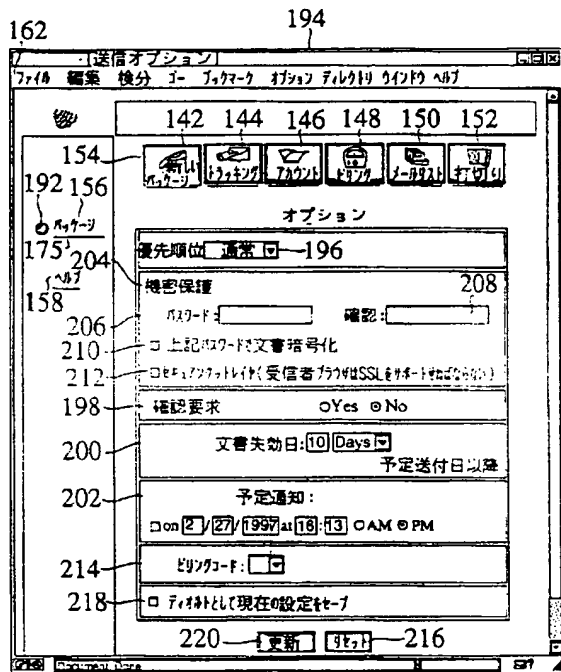 162
194
送信オプション
ファイル 編集 検分 ゴー ブックマーク オプション ディレクトリ ウインドウ ヘルプ
142 144 146 148 150 152
154
新しい パッケージ
トラッキング
アカウント
ビリング
メールリスト
192 156
パッケージ
175
ヘルプ
158
オプション
優先順位 通常
196
204
機密保護
206
パスワード:
確認:
208
210
上記パスワードで文書暗号化
212
セキュアソケットレイヤ(受信者ブラウザはSSLをサポートせねばならない)
198
確認要求 Yes No
200
文書失効日: 10 Days
予定送付日以降
202
予定通知:
on 2 / 27 / 1997 at 16 : 13 AM PM
214
ビリングコード:
218
ディオネトとして現在の設定をセーブ
220
更新 リセット
216
Document Done